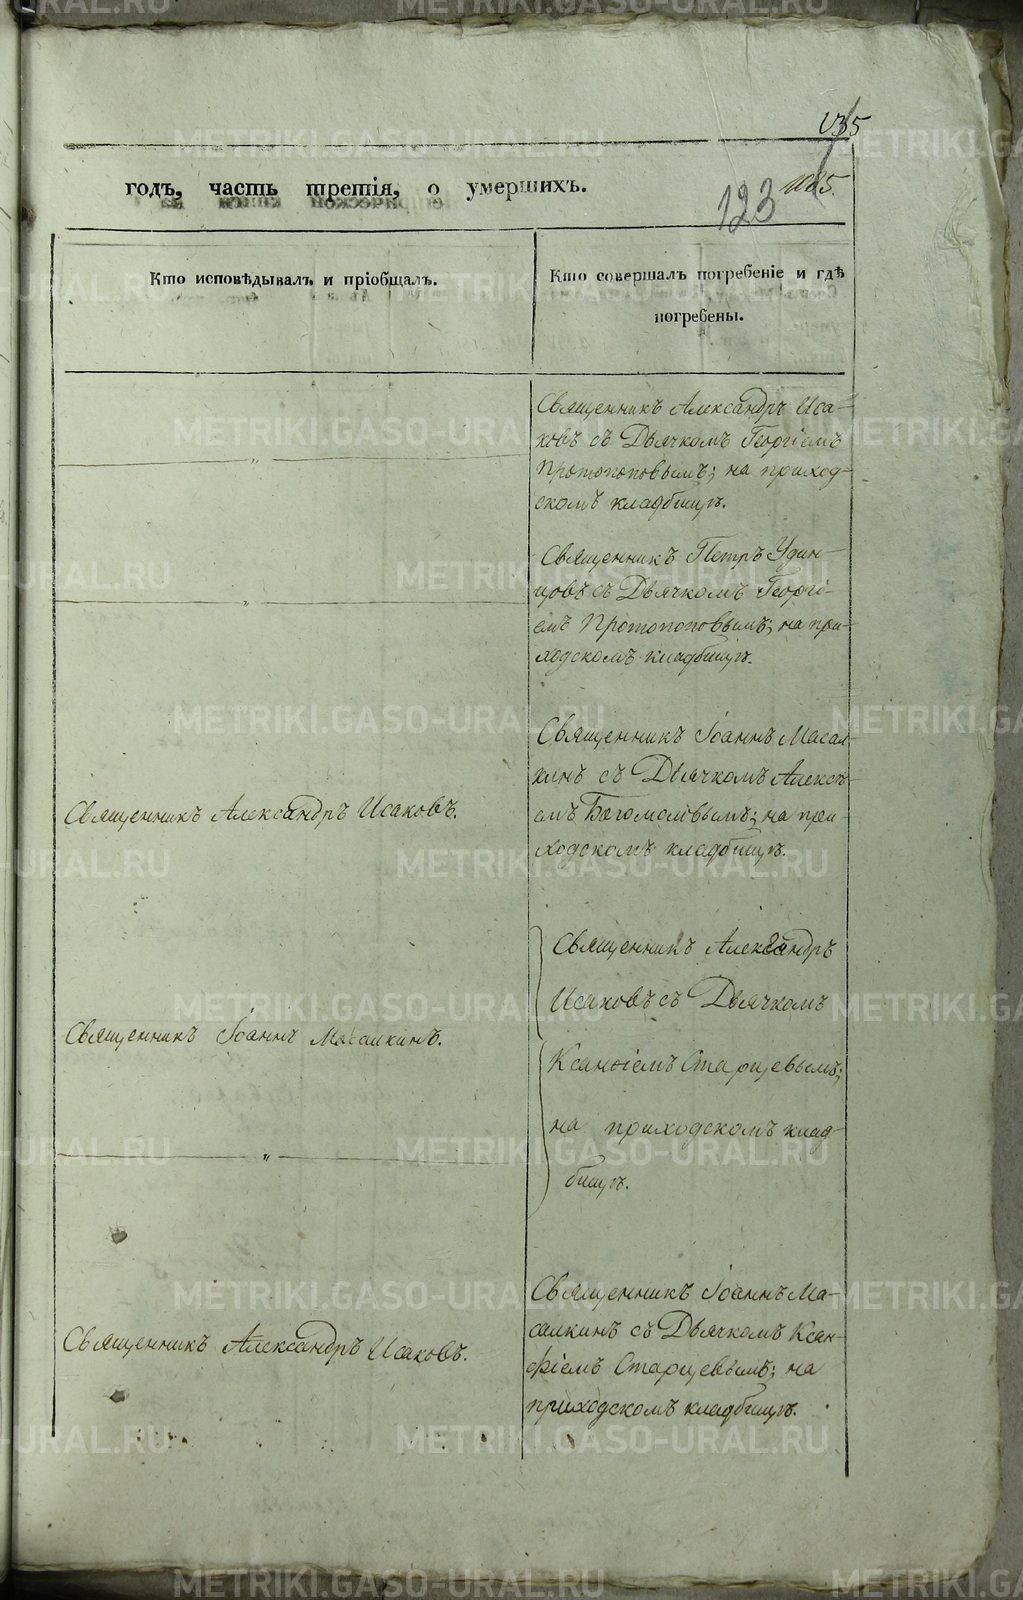 годъ, часть третія, о умершихъ.
123
Кто исповѣдывалъ и пріобщалъ.
Кто совершалъ погребеніе и гдѣ
погребены.
Священникъ Александръ Иса-
ковъ съ Дьячкомъ Георгіемъ
Протопоповымъ; на приход-
скомъ кладбищѣ.
Священникъ Петръ Удин-
цовъ съ Дьячкомъ Георгі-
емъ Протопоповымъ; на при-
ходскомъ кладбищѣ.
Священникъ Александръ Исаковъ.
Священникъ Іоаннъ Масал-
кинъ съ Дьячкомъ Алексѣ-
емъ Богомоловымъ; на при-
ходскомъ кладбищѣ.
Священникъ Іоаннъ Масалкинъ.
Священникъ Александръ
Исаковъ съ Дьячкомъ
Ксанѳіемъ Старцевымъ;
на приходскомъ клад-
бищѣ.
Священникъ Александръ Исаковъ.
Священникъ Іоаннъ Ма-
салкинъ съ Дьячкомъ Ксан-
фіемъ Старцевымъ; на
приходскомъ кладбищѣ.
METRIKI.GASO-URAL.RU